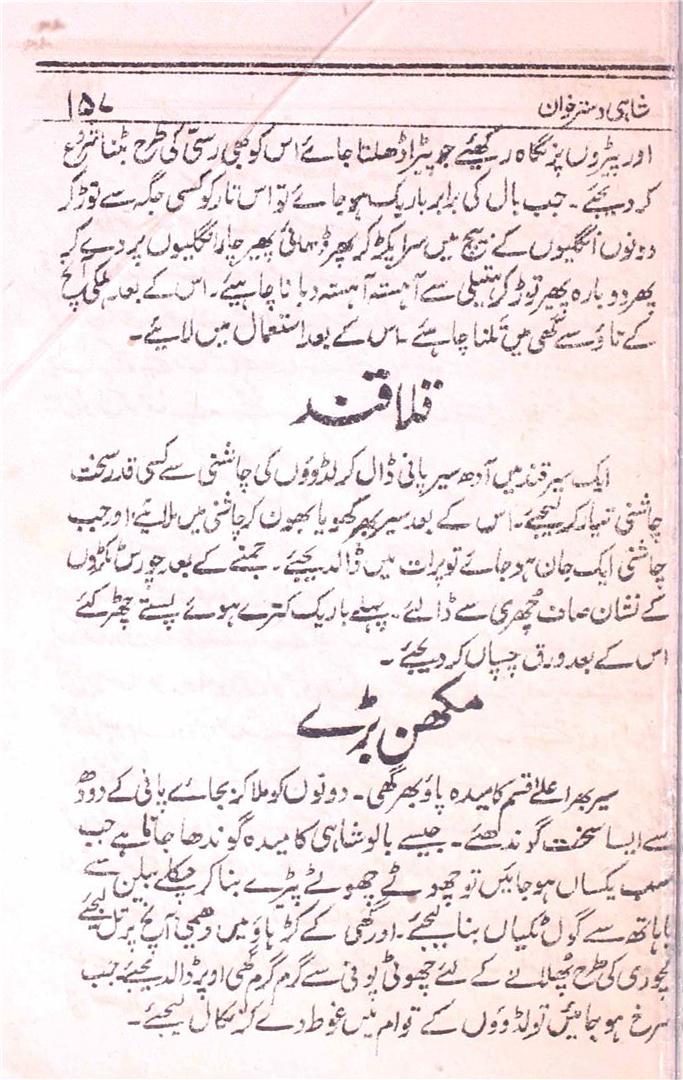 شاہی دسترخوان ۱۵۷
اور پیڑوں پر نگاہ رکھیئے جو پیڑا ڈھلتا جائے اس کو بھی رسی کی طرح بٹنا شروع
کر دیجئے۔ جب بال کی برابر باریک ہو جائے تو اس تار کو کسی جگہ سے توڑ کر
دونوں انگلیوں کے بیچ میں سرا پکڑ کر پھر ڈہائی پھیر چار انگلیوں پر دے کر
پھر دوبارہ پھیر توڑ کر ہتیلی سے آہستہ آہستہ دبانا چاہیئے۔ اس کے بعد ہلکی آنچ
کے تاؤ سے گھی میں تلنا چاہئے۔ اس کے بعد استعمال میں لائیے۔
قلاقند
ایک سیر قند میں آدھ سیر پانی ڈال کر لڈوؤں کی چاشنی سے کسی قدر سخت
چاشنی تیار کر لیجیے۔ اس کے بعد سیر بھر کھویا بھون کر چاشنی میں ملایئے اور جب
چاشنی ایک جان ہو جائے تو پرات میں ڈالدیجیے۔ جمنے کے بعد چورس ٹکڑوں
کے نشان صاف چھری سے ڈالئے۔ پہلے باریک کترے ہوئے پستے چھڑکئے
اس کے بعد ورق چسپاں کر دیجئے۔
مکھن بڑے
سیر بھر اعلےٰ قسم کا میدہ پاؤ بھر گھی۔ دونوں کو ملا کر بجائے پانی کے دودھ
سے ایسا سخت گوندھئے۔ جیسے بالوشاہی کا میدہ گوندھا جاتا ہے جب
سب یکساں ہو جائیں تو چھوٹے چھوٹے پیڑے بنا کر چکلے بیلن سے
یا ہاتھ سے گول ٹکیاں بنا لیجئے۔ اور گھی کے کڑہاؤ میں دھیمی آنچ پر تل لیجئے
کچوری کی طرح پھلانے کے لئے چھوٹی پونی سے گرم گرم گھی اوپر ڈالدیجئے جب
سرخ ہو جائیں تو لڈوؤں کے قوام میں غوطہ دے کر نکال لیجئے۔